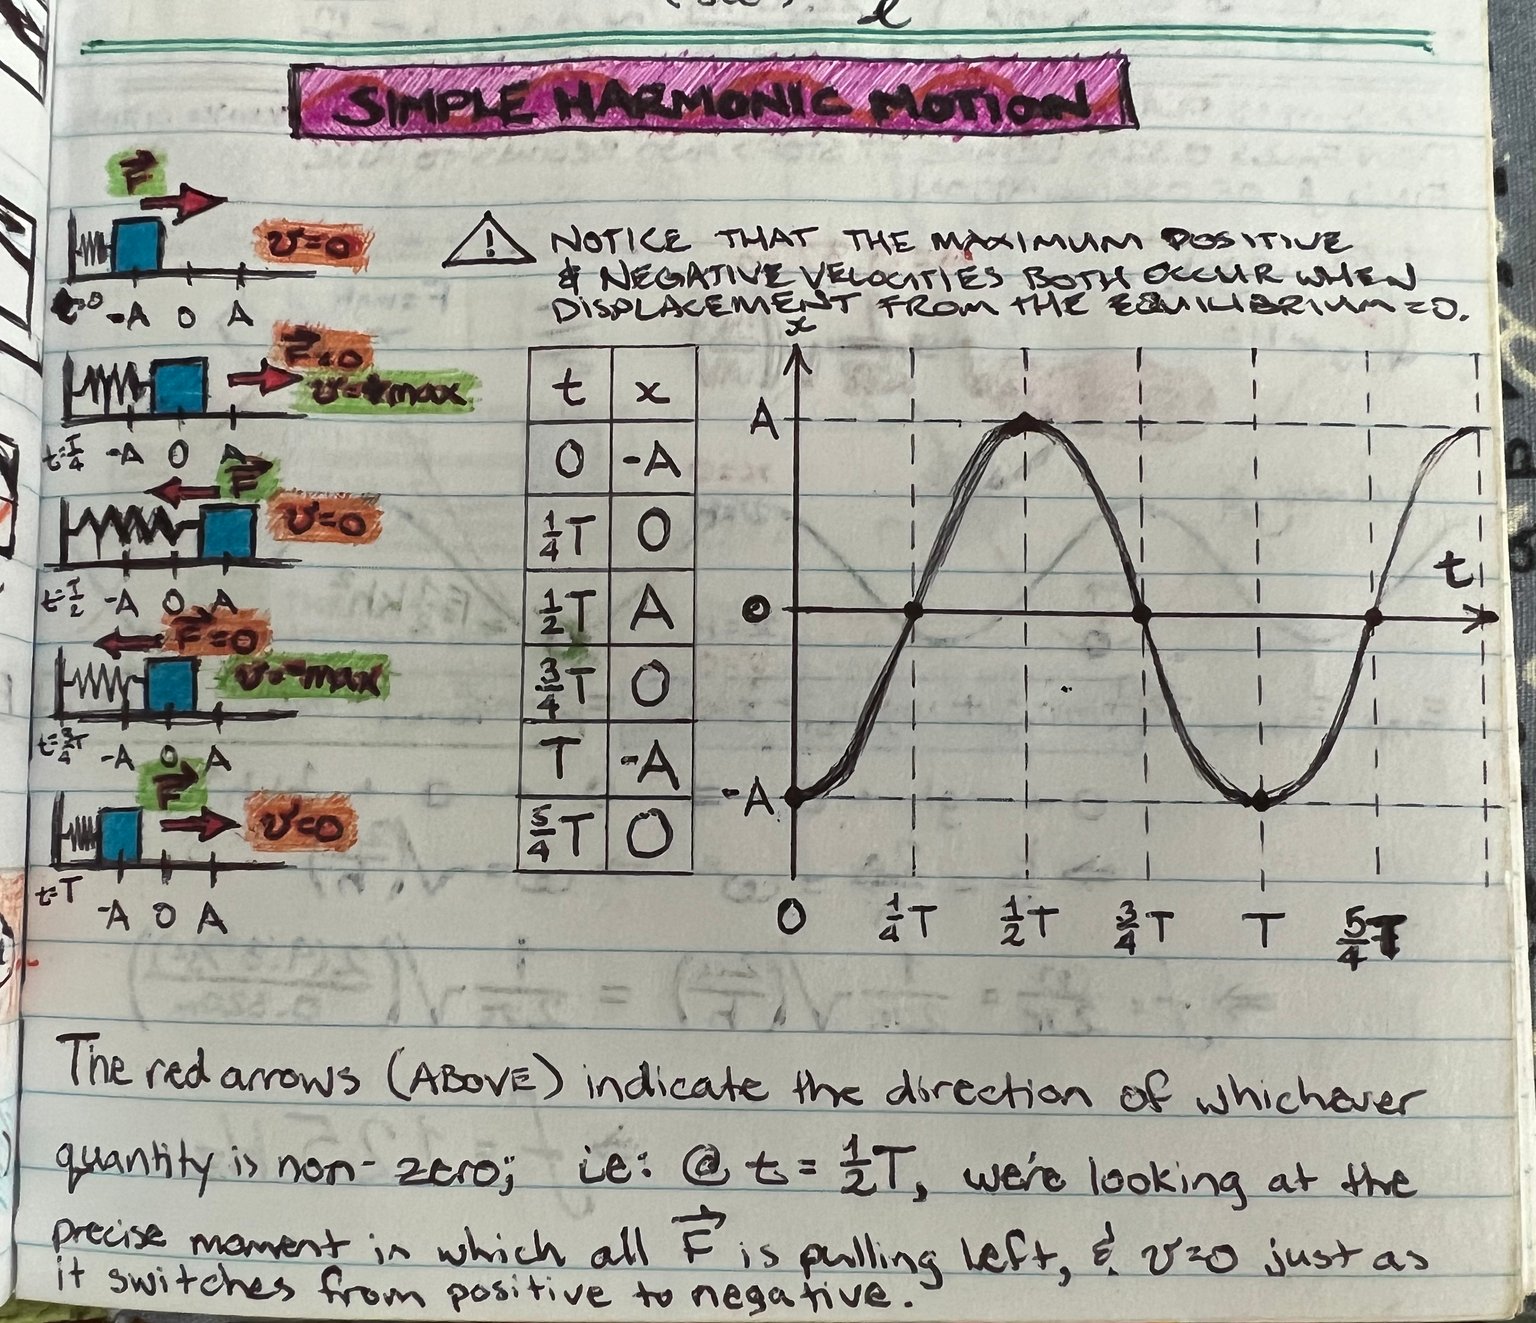 SIMPLE HARMONIC MOTION
F
v=0
t=0 -A 0 A
F=0
v=+max
t=T/4 -A 0 A
F
v=0
t=T/2 -A 0 A
F=0
v=-max
t=3/4T -A 0 A
F
v=0
t=T -A 0 A
! NOTICE THAT THE MAXIMUM POSITIVE
& NEGATIVE VELOCITIES BOTH OCCUR WHEN
DISPLACEMENT FROM THE EQUILIBRIUM=0.
t x
0 -A
1/4T 0
1/2T A
3/4T 0
T -A
5/4T 0
x
A
0
-A
t
0 1/4T 1/2T 3/4T T 5/4T
The red arrows (ABOVE) indicate the direction of whichever
quantity is non-zero; ie: @ t = 1/2T, we're looking at the
precise moment in which all F is pulling left, & v=0 just as
it switches from positive to negative.